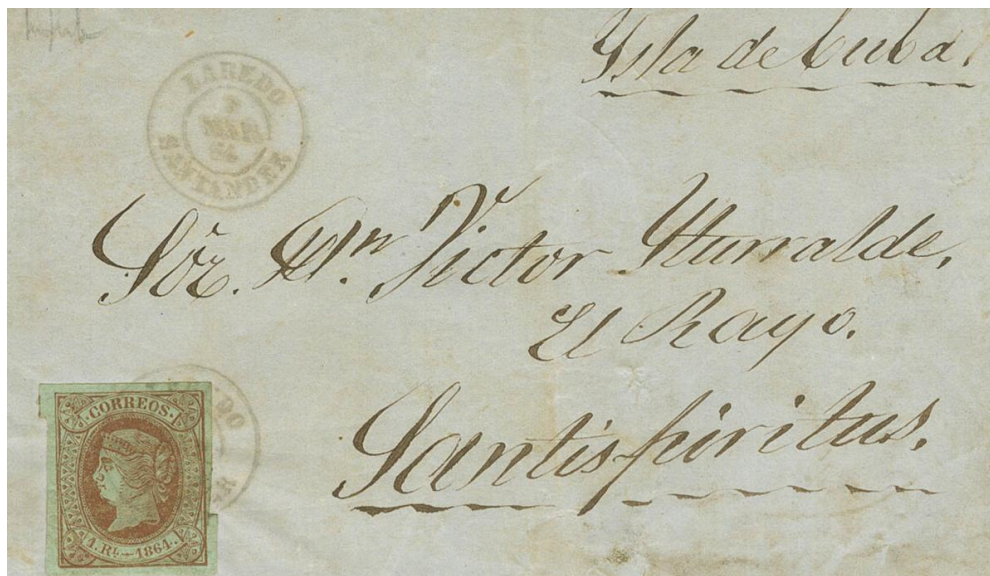 Ysla de Cuba.
LAREDO
3
MAR
64
SANTANDER
Sor. Dn. Victor Yturralde,
El Rayo.
Santispiritus.
CORREOS.
1. Rl.-1864.